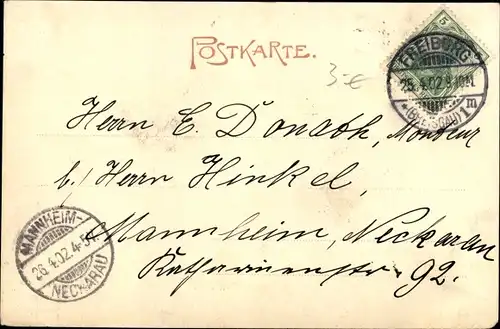 POSTKARTE.
3.-€
5
FREIBURG
25.4.02.8-9
* (BREISGAU) 1 m
Herrn E. Donath, Monteur
b./ Herrn Hinkel,
Mannheim, Neckarau
Katharinenstr. 92.
MANNHEIM-
26.4.02.4-5
NECKARAU